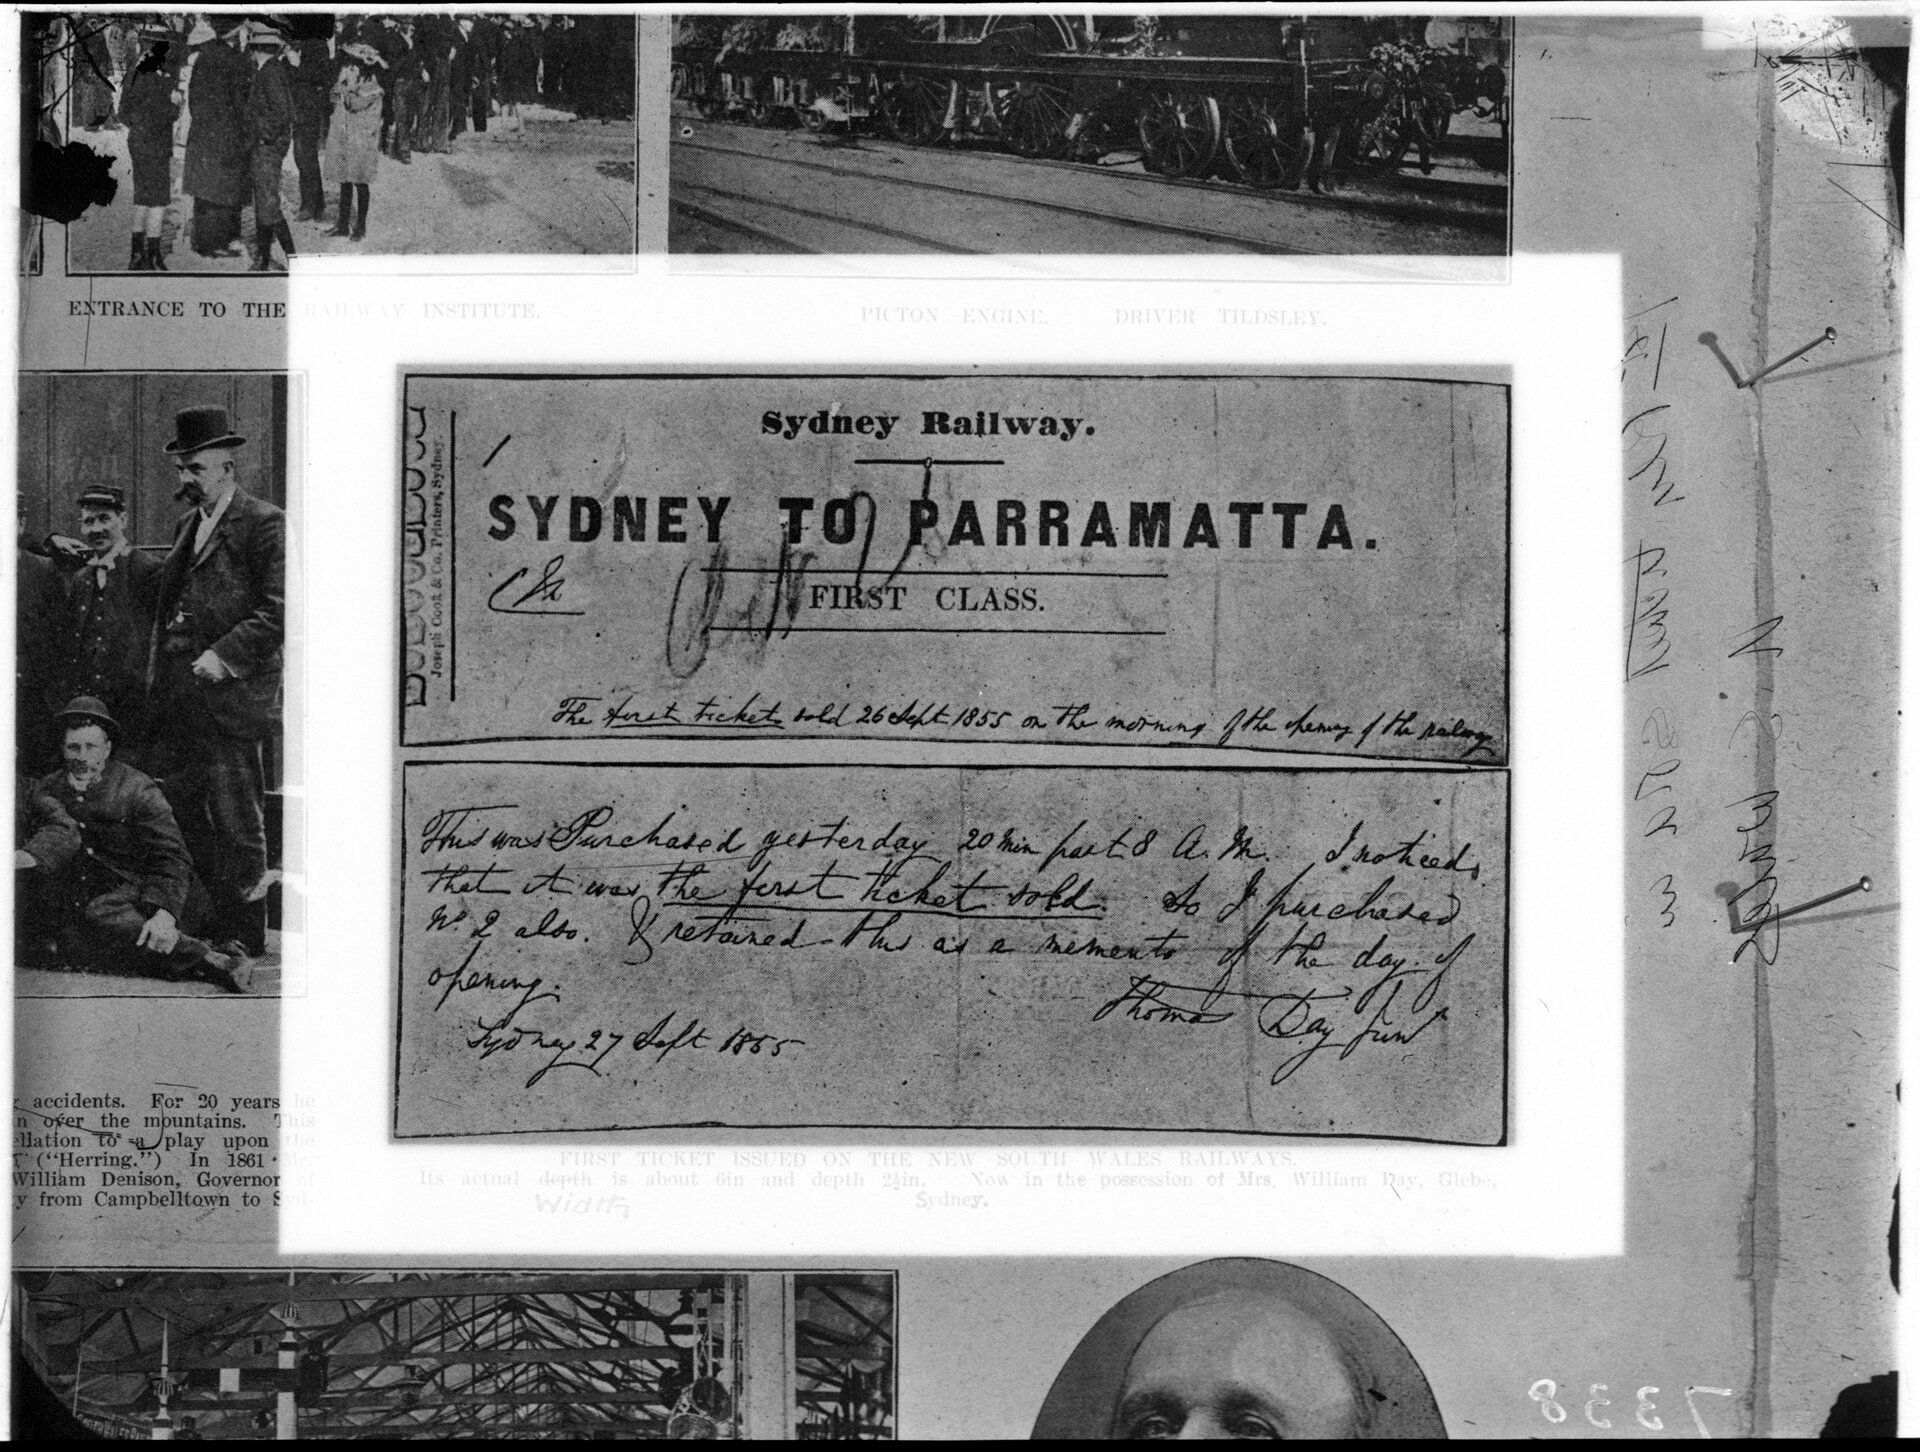 ENTRANCE TO THE RAILWAY INSTITUTE.
PICTON ENGINE. DRIVER TILDSLEY.
Sydney Railway.
SYDNEY TO PARRAMATTA.
FIRST CLASS.
Joseph Cook & Co. Printers, Sydney.
The first ticket sold 26 Sept 1855 on the morning of the opening of the railway
This was Purchased yesterday 20 min past 8 A. M. I noticed
that it was the first ticket sold. So I purchased
No 2 also. & retained this as a memento of the day of
opening.
Thomas Day Junr
Sydney 27 Sept 1855
FIRST TICKET ISSUED ON THE NEW SOUTH WALES RAILWAYS.
Its actual depth is about 6in and depth 2½in. Now in the possession of Mrs. William Day, Glebe,
Width
Sydney.
accidents. For 20 years he
n over the mountains. This
ellation to a play upon the
("Herring.") In 1861 Mr.
William Denison, Governor of
y from Campbelltown to Syd-
7338